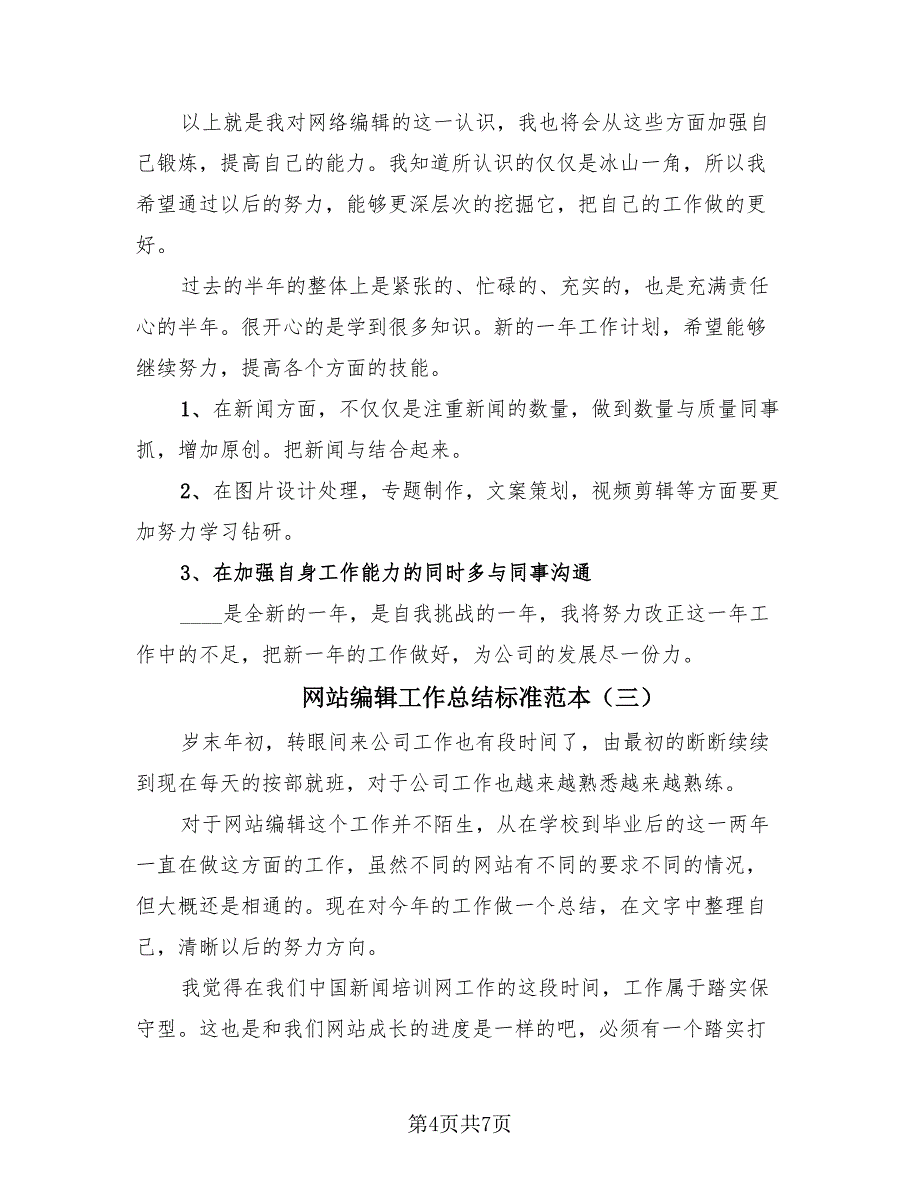 以上就是我对网络编辑的这一认识，我也将会从这些方面加强自
己锻炼，提高自己的能力。我知道所认识的仅仅是冰山一角，所以我
希望通过以后的努力，能够更深层次的挖掘它，把自己的工作做的更
好。
过去的半年的整体上是紧张的、忙碌的、充实的，也是充满责任
心的半年。很开心的是学到很多知识。新的一年工作计划，希望能够
继续努力，提高各个方面的技能。
1、在新闻方面，不仅仅是注重新闻的数量，做到数量与质量同事
抓，增加原创。把新闻与结合起来。
2、在图片设计处理，专题制作，文案策划，视频剪辑等方面要更
加努力学习钻研。
3、在加强自身工作能力的同时多与同事沟通
____是全新的一年，是自我挑战的一年，我将努力改正这一年工
作中的不足，把新一年的工作做好，为公司的发展尽一份力。
网站编辑工作总结标准范本（三）
岁末年初，转眼间来公司工作也有段时间了，由最初的断断续续
到现在每天的按部就班，对于公司工作也越来越熟悉越来越熟练。
对于网站编辑这个工作并不陌生，从在学校到毕业后的这一两年
一直在做这方面的工作，虽然不同的网站有不同的要求不同的情况，
但大概还是相通的。现在对今年的工作做一个总结，在文字中整理自
己，清晰以后的努力方向。
我觉得在我们中国新闻培训网工作的这段时间，工作属于踏实保
守型。这也是和我们网站成长的进度是一样的吧，必须有一个踏实打
第4页共7页